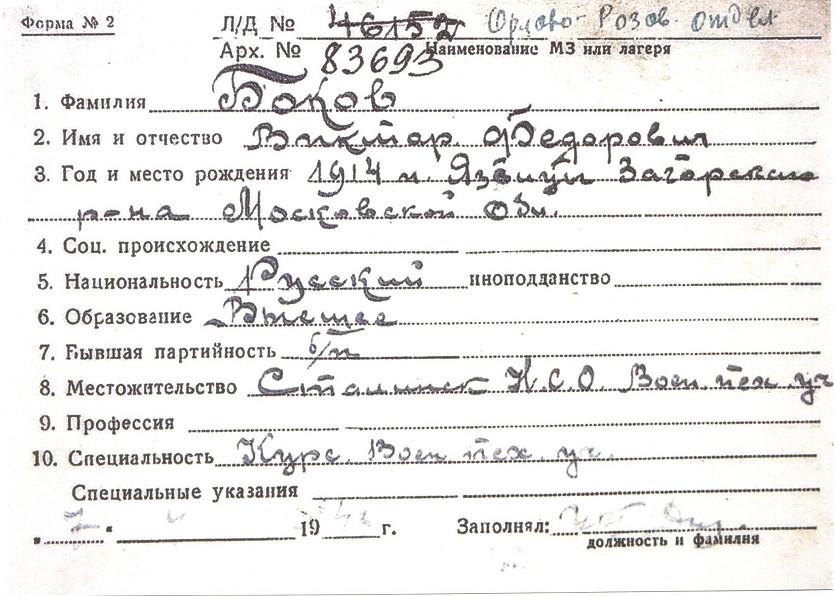 Форма № 2
Л/Д № 46152 Орлово-Розов. отдел
Арх. № 83693 Наименование МЗ или лагеря
1. Фамилия Боков
2. Имя и отчество Виктор Федорович
3. Год и место рождения 1914 Язвицы Загорского
р-на Московской Обл.
4. Соц. происхождение
5. Национальность Русский иноподданство
6. Образование Высшее
7. Бывшая партийность б/п
8. Местожительство Сталинск Н.С.О. Воен пех уч
9. Профессия
10. Специальность Курс. Воен пех уч.
Специальные указания
19 г. Заполнял:
должность и фамилия